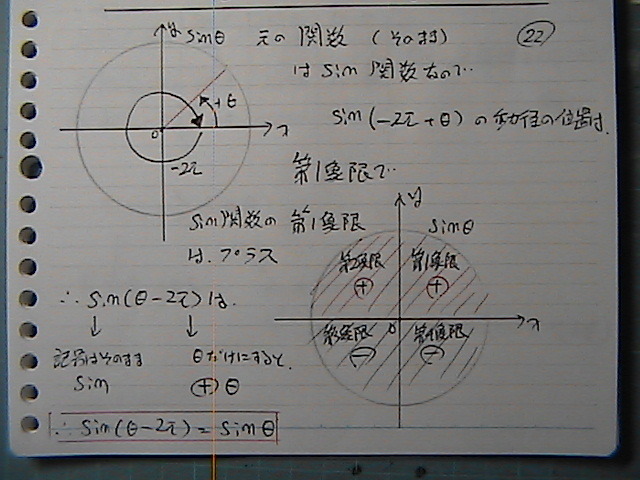 y sinθ 元の関数 (そのまま) 22
は sin関数なので…
+θ
0 x
sin(-2π+θ)の動径の位置は,
-2π
第1象限で…
sin関数の第1象限
は、プラス
y sinθ
第2象限 第1象限
+ +
∴ sin(θ-2π)は,
0 x
第3象限 第4象限
- -
↓ ↓
記号はそのまま θだけにすると,
sin + θ
∴ sin(θ-2π) = sinθ